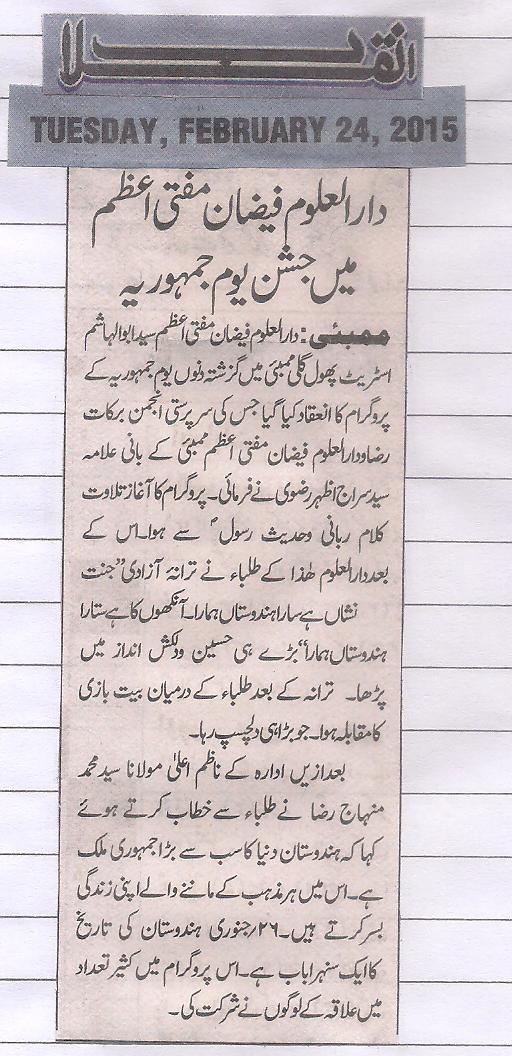 انقلاب
TUESDAY, FEBRUARY 24, 2015
دارالعلوم فیضان مفتی اعظم
میں جشن یوم جمہوریہ
ممبئی: دارالعلوم فیضان مفتی اعظم سید ابوالہاشم
اسٹریٹ پھول گلی ممبئی میں گزشتہ دنوں یوم جمہوریہ کے
پروگرام کا انعقاد کیا گیا جس کی سرپرستی انجمن برکات
رضا و دارالعلوم فیضان مفتی اعظم ممبئی کے بانی علامہ
سید سراج اظہر رضوی نے فرمائی۔ پروگرام کا آغاز تلاوت
کلام ربانی و حدیث رسولؐ سے ہوا۔ اس کے
بعد دارالعلوم ھٰذا کے طلباء نے ترانۂ آزادی ”جنت
نشاں ہے سارا ہندوستاں ہمارا۔ آنکھوں کا ہے ستارا
ہندوستاں ہمارا“ بڑے ہی حسین و دلکش انداز میں
پڑھا۔ ترانہ کے بعد طلباء کے درمیان بیت بازی
کا مقابلہ ہوا۔ جو بڑا ہی دلچسپ رہا۔
بعد ازیں ادارہ کے ناظم اعلیٰ مولانا سید محمد
منہاج رضا نے طلباء سے خطاب کرتے ہوئے
کہا کہ ہندوستان دنیا کا سب سے بڑا جمہوری ملک
ہے۔ اس میں ہر مذہب کے ماننے والے اپنی زندگی
بسر کرتے ہیں۔ ۲۶؍جنوری ہندوستان کی تاریخ
کا ایک سنہرا باب ہے۔ اس پروگرام میں کثیر تعداد
میں علاقہ کے لوگوں نے شرکت کی۔